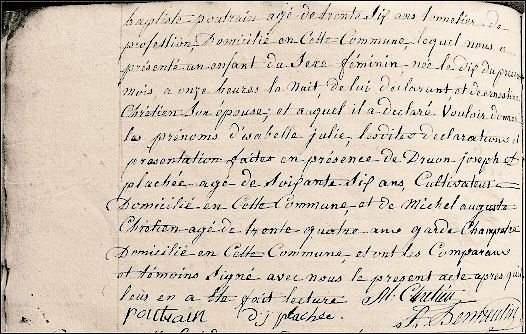 baptiste poutrain agé de trente six ans tonnelier de
profession Domicilié en Cette Commune, lequel nous a
présenté un enfant du Sexe féminin née le dix du présent
mois, a onze heures la Nuit, de lui déclarant et de ernestine
Chrétien Son épouse; et auquel il a déclaré Vouloir donner
les prénoms d'isabelle julie, lesdites declarations et
presentation faites en présence de Druon joseph
plachée agé de soixante six ans, Cultivateur
Domicilié en Cette Commune, et de Michel auguste
Chretien agé de trente quatre ans garde Champetre
Domicilié en Cette Commune, et ont les Comparans
et témoins Signé avec nous le present acte apres qu'il
leus en a été fait lecture M. Chretien
poutrain d'j plachée